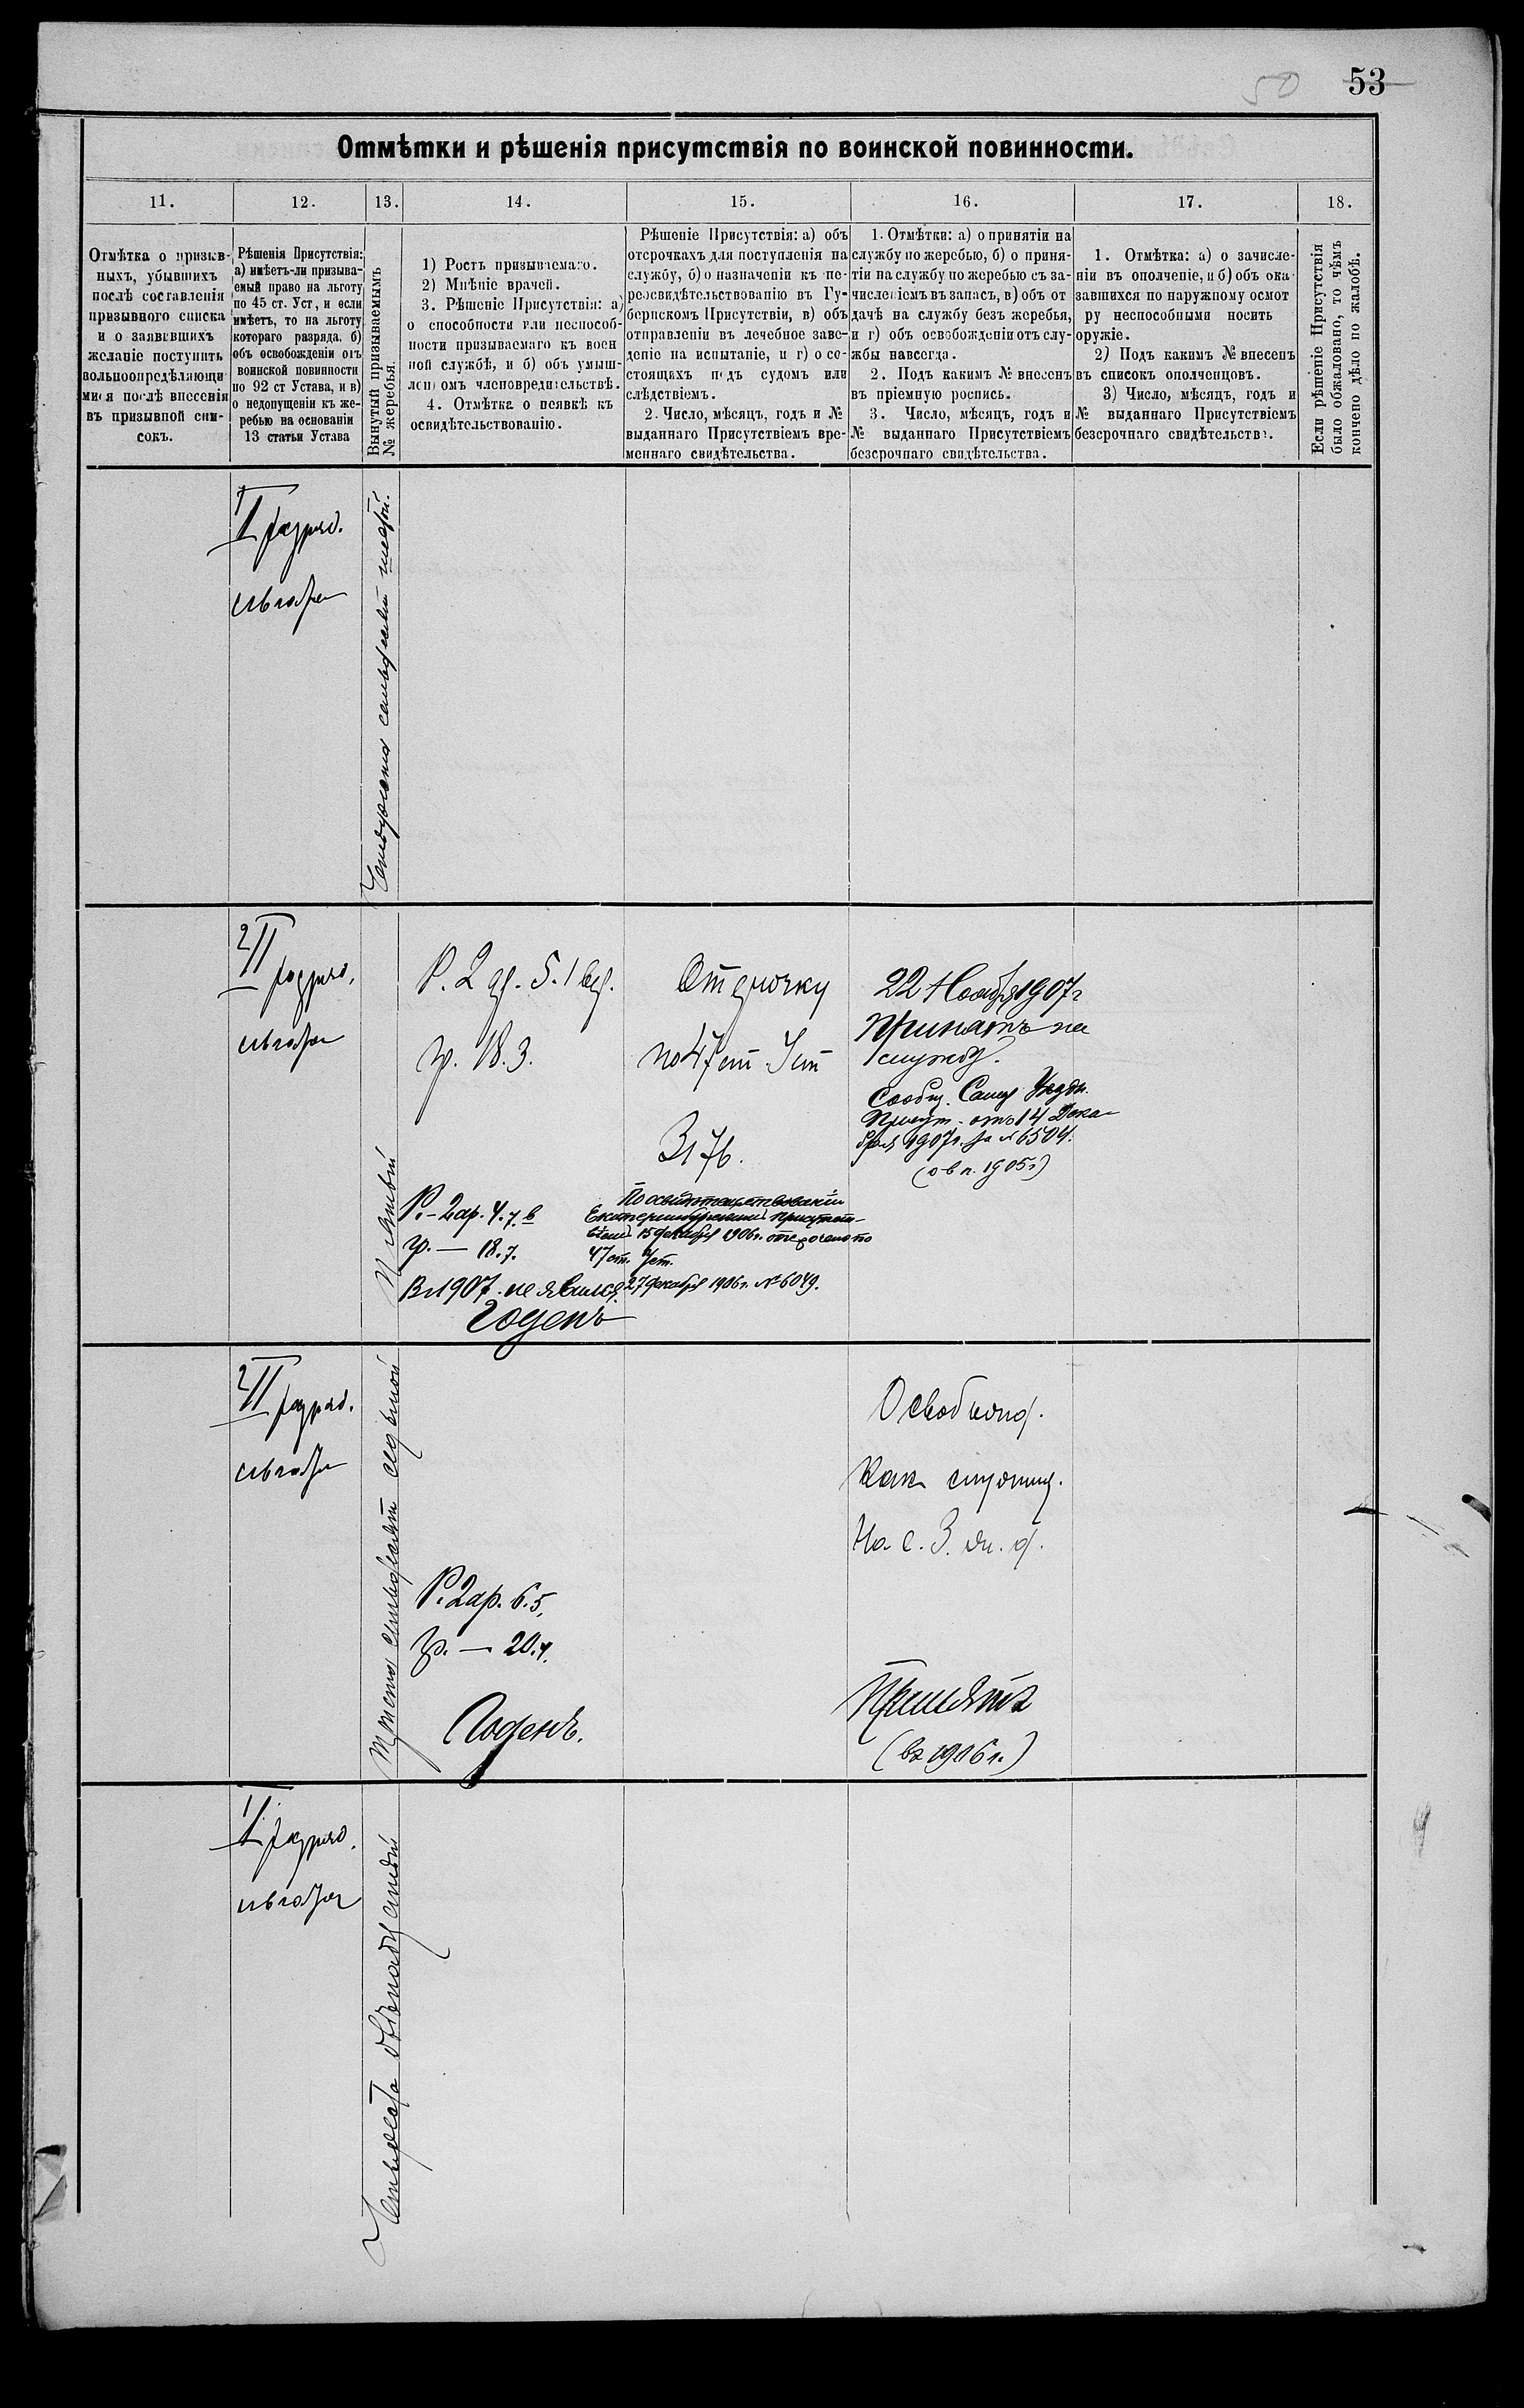 50 53
Отмѣтки и рѣшенія присутствія по воинской повинности.
11. 12. 13. 14. 15. 16. 17. 18.
Отмѣтка о призыв-
ныхъ, убывшихъ
послѣ составленія
призывного списка
и о заявившихъ
желаніе поступить
вольноопредѣляющи
мися послѣ внесенія
въ призывной спи-
сокъ.
Рѣшенія Присутствія:
а) имѣетъ-ли призыва-
емый право на льготу
по 45 ст. Уст, и если
имѣетъ, то на льготу
котораго разряда. б)
объ освобожденіи отъ
воинской повинности
по 92 ст Устава, и в)
о недопущеніи къ же-
ребью на основаніи
13 статьи Устава
Вынутый призываемымъ
№ жеребья.
1) Ростъ призываемаго.
2) Мнѣніе врачей.
3. Рѣшеніе Присутствія: а)
о способности или неспособ-
ности призываемаго къ воен
ной службѣ, и б) объ умыш-
ленномъ членовредительствѣ.
4. Отмѣтка о неявкѣ къ
освидѣтельствованію.
Рѣшеніе Присутствія: а) объ
отсрочкахъ для поступленія на
службу, б) о назначеніи къ пе-
реосвидѣтельствованію въ Гу-
бернскомъ Присутствіи, в) объ
отправленіи въ лечебное заве-
деніе на испытаніе, и г) о со-
стоящихъ подъ судомъ или
слѣдствіемъ.
2. Число, мѣсяцъ, годъ и №
выданнаго Присутствіемъ вре-
меннаго свидѣтельства.
1. Отмѣтки: а) о принятіи на
службу по жеребью, б) о приня-
тіи на службу по жеребью съ за-
численіемъ въ запасъ, в) объ от
дачѣ на службу безъ жеребья,
и г) объ освобожденіи отъ слу-
жбы навсегда.
2. Подъ какимъ № внесенъ
въ пріемную роспись.
3. Число, мѣсяцъ, годъ и
№ выданнаго Присутствіемъ
безсрочнаго свидѣтельства.
1. Отмѣтка: а) о зачисле-
ніи въ ополченіе, и б) объ ока
завшихся по наружному осмот
ру неспособными носить
оружіе.
2) Подъ какимъ № внесенъ
въ списокъ ополченцовъ.
3) Число, мѣсяцъ, годъ и
№ выданнаго Присутствіемъ
безсрочнаго свидѣтельства.
Если рѣшеніе Присутствія
было обжаловано, то чѣмъ
кончено дѣло по жалобѣ.
I разряд.
льготы
шестой.
II разряд.
льготы
Р. 2 ар. 5.
гр. 18.3.
Отсрочку
по 47 ст. Уст
3176.
22 Ноября 1907г
Принятъ на
службу.
Сообщ. Уѣздн.
Присут. отъ 14 Дека-
бря 1907г. за № 6504.
1905г)
Р.-2ар. 4.7.в
гр. — 18.7.
Въ 1907. не явился.
Годенъ
По освидѣтельствованіи
Екатеринбургскимъ присутст-
віемъ 15 декабря 1906г. отсрочено по
47 ст. Уст.
27 декабря 1906г. № 6049.
II разряд.
льготы
седьмой
Р. 2ар. 6.5.
гр. — 20.4.
Годенъ.
Освобожд.
Какъ
Принятъ
(въ 1906г.)
I разряд.
льготы
Четыреста двѣнадцатый